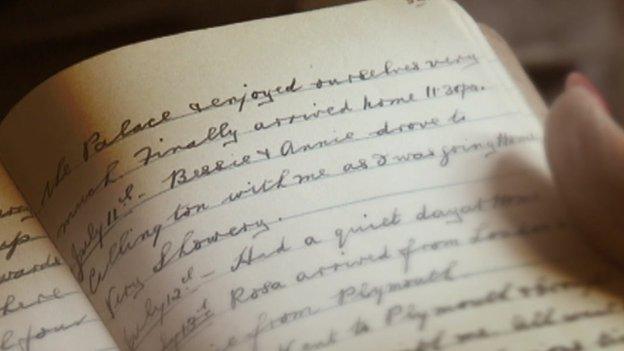 the Palace & enjoyed ourselves very
much. Finally arrived home 11.30pm.
July 11th - Bessie & Annie drove to
Callington with me as I was going Home
Very Showery.
July 12th - Had a quiet day at Home
July 13th Rosa arrived from London
from Plymouth
went to Plymouth &
me
wards
here
your